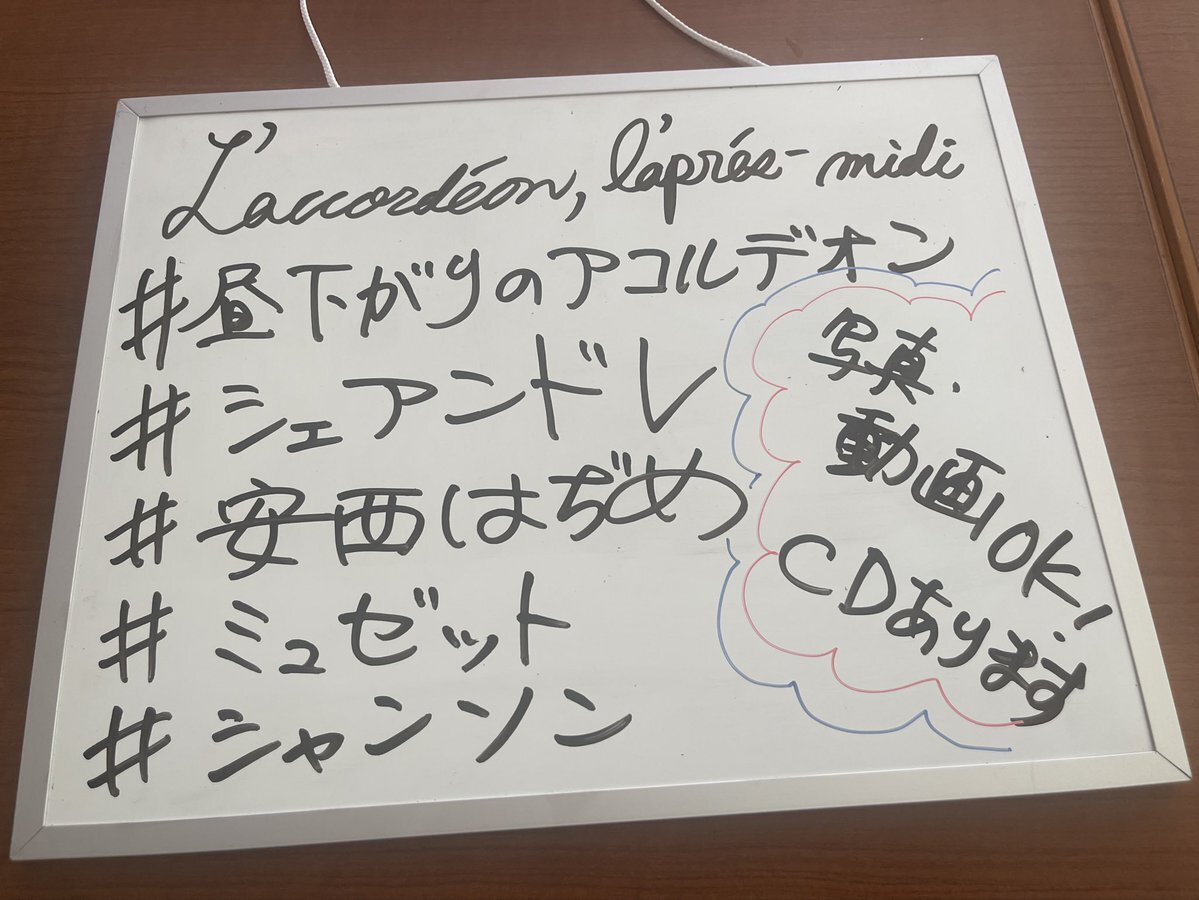 L'accordéon, l'aprés-midi
#昼下がりのアコルデオン
#シェアンドレ
#安西はぢめ
#ミュゼット
#シャンソン
写真・
動画OK!
CDあります